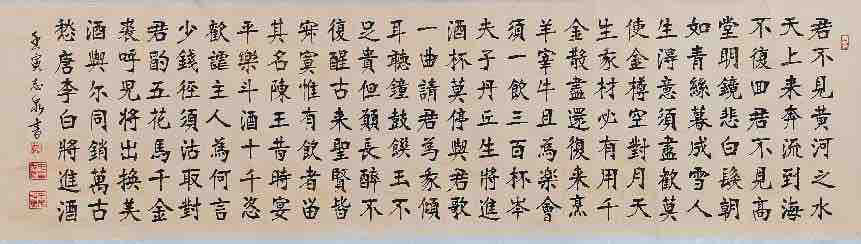 君不見黃河之水
天上来奔流到海
不復回君不見高
堂明鏡悲白髮朝
如青絲暮成雪人
生得意須盡歡莫
使金樽空對月天
生我材必有用千
金散盡還復来烹
羊宰牛且為樂會
須一飲三百杯岑
夫子丹丘生將進
酒杯莫停與君歌
一曲請君為我傾
耳聽鐘鼓饌玉不
足貴但願長醉不
復醒古来聖賢皆
寂寞惟有飲者留
其名陳王昔時宴
平樂斗酒十千恣
歡謔主人為何言
少錢徑須沽取對
君酌五花馬千金
裘呼兒將出換美
酒與尔同銷萬古
愁唐李白將進酒
壬寅志泉書